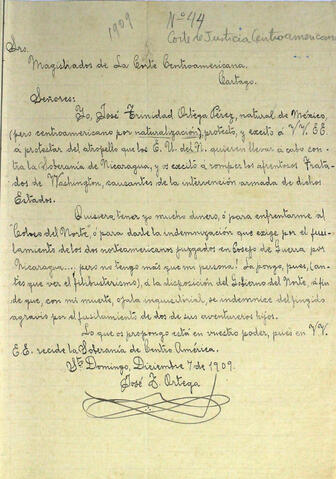 1909
Nº 44
Corte de Justicia Centroamericana
Sres.
Magistrados de La Corte Centroamericana.
Cartago.
Señores:
Yo, José Trinidad Ortega Pérez, natural de México,
(pero centroamericano por naturalización), protesto, y excito á VV. EE.
á protestar del atropello que los E. U. del N. quieren llevar á cabo con-
tra la Soberanía de Nicaragua, y os excito á romper los afrentosos Trata-
dos de Washington, causantes de la intervención armada de dichos
Estados.
Quisiera tener yo mucho dinero, ó para enfrentarme al
"Coloso del Norte", ó para darle la indemnización que exige por el fusi-
lamiento de los dos norteamericanos juzgados en Consejo de Guerra por
Nicaragua.... pero no tengo más que mi persona! La pongo, pues, (an-
tes que ver el filibusterismo), á la disposición del Gobierno del Norte, á fin
de que, con mi muerte, ó pena inquisitorial, se indemnice del fingido
agravio por el fusilamiento de dos de sus aventureros hijos.
Lo que os propongo está en vuestro poder, pues en VV.
E.E. reside la Soberanía de Centro América.
Sto. Domingo, Diciembre 7 de 1909.
José T. Ortega